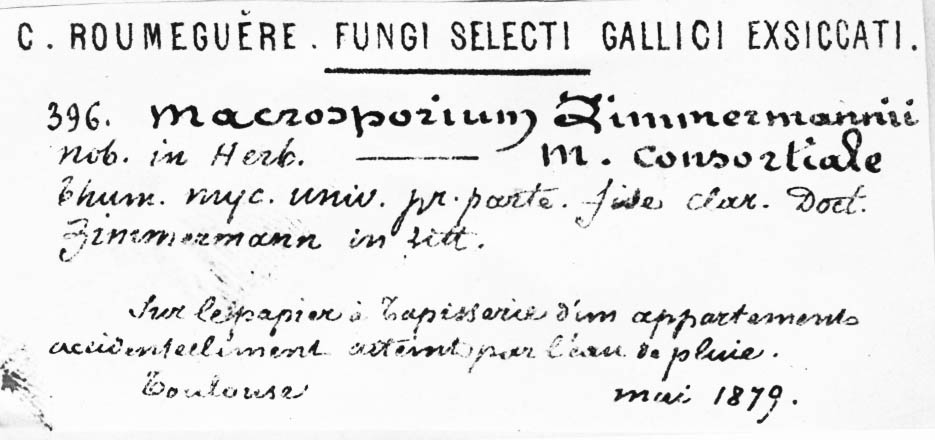 C. ROUMEGUÈRE. FUNGI SELECTI GALLICI EXSICCATI.
396. Macrosporium Zimmermannii
nob. in Herb. — M. consortiale
Thum. myc. univ. pr. parte. fide clar. Doct.
Zimmermann in litt.
Sur le papier à Tapisserie d'un appartement
accidentellement atteint par l'eau de pluie.
Toulouse mai 1879.